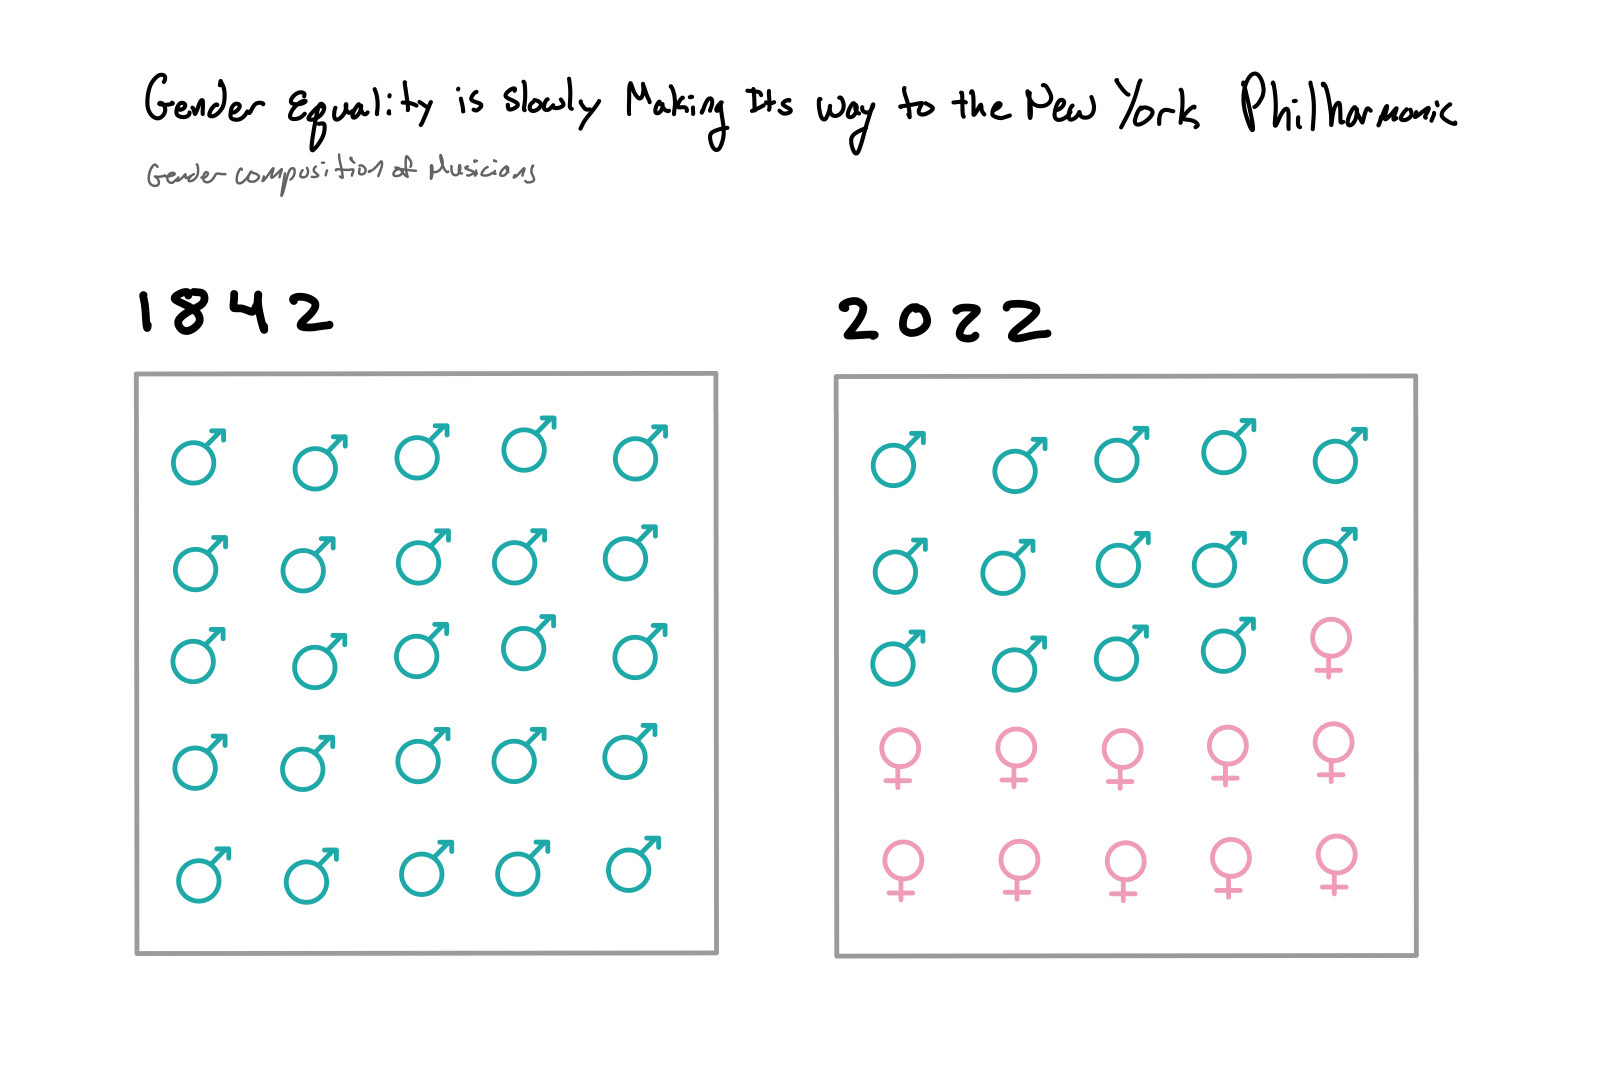 Gender Equality is slowly Making Its way to the New York Philharmonic
Gender composition of Musicians
1842
2022